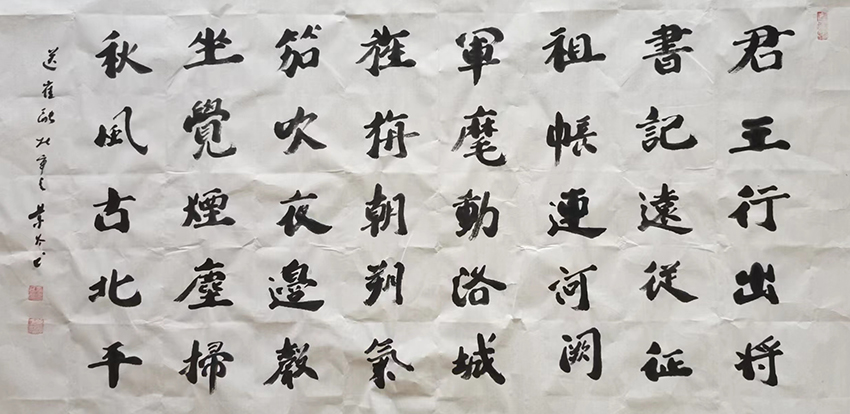 君王行出将
書記遠從征
祖帳連河闕
軍麾動洛城
旌旃朝朔氣
笳吹夜邊聲
坐覺煙塵掃
秋風古北平
送崔融 杜审言